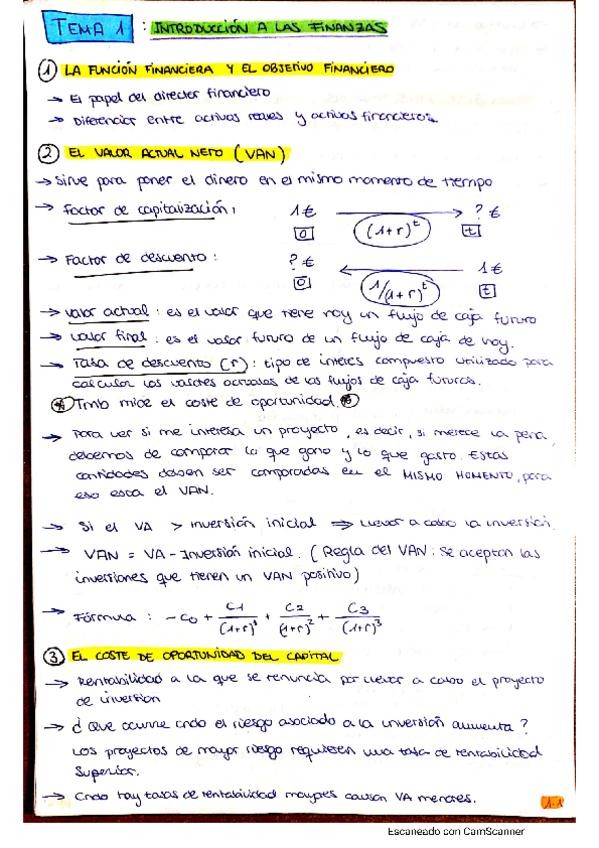 TEMA 1 : INTRODUCCIÓN A LAS FINANZAS
① LA FUNCIÓN FINANCIERA Y EL OBJETIVO FINANCIERO
→ El papel del director financiero
→ Diferenciar entre activos reales y activos financieros.
② EL VALOR ACTUAL NETO (VAN)
→ Sirve para poner el dinero en el mismo momento de tiempo
→ Factor de capitalización: 1€ → ? €
0 (1+r)^t t
→ Factor de descuento: ? € ← 1€
0 1/(1+r)^t t
→ Valor actual: es el valor que tiene hoy un flujo de caja futuro
→ Valor final: es el valor futuro de un flujo de caja de hoy.
→ Tasa de descuento (r): tipo de interés compuesto utilizado para
calcular los valores actuales de los flujos de caja futuros.
* Tmb mide el coste de oportunidad *
→ Para ver si me interesa un proyecto, es decir, si merece la pena,
debemos de comparar lo que gano y lo que gasto. Estas
cantidades deben ser comparadas en el MISMO MOMENTO, para
eso esta el VAN.
→ Si el VA > inversión inicial ⇒ llevar a cabo la inversión.
→ VAN = VA - Inversión inicial. (Regla del VAN: se aceptan las
inversiones que tienen un VAN positivo)
→ Fórmula: -C0 + C1/(1+r)^1 + C2/(1+r)^2 + C3/(1+r)^3
③ EL COSTE DE OPORTUNIDAD DEL CAPITAL
→ Rentabilidad a la que se renuncia por llevar a cabo el proyecto
de inversión
→ ¿Que ocurre cndo el riesgo asociado a la inversión aumenta?
Los proyectos de mayor riesgo requieren una tasa de rentabilidad
superior.
→ Cndo hay tasas de rentabilidad mayores causan VA menores.
1.1
Escaneado con CamScanner